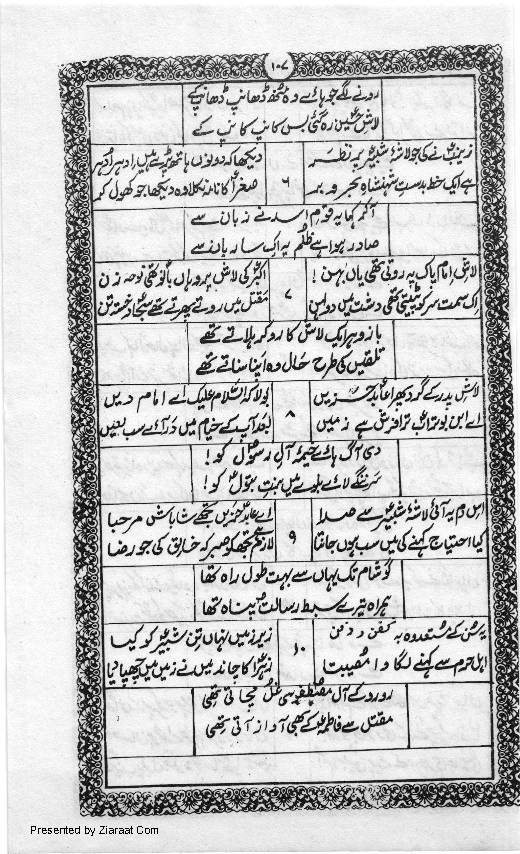 ۱۰۷
رونے لگے جو ہائے وہ منھ ڈھانپ ڈھانپ کے
لاش حسین رہ گئی بس کانپ کانپ کے
زینب نے کی جو لاشۂ شبیر پہ نظر
دیکھا کہ دونوں ہاتھ پڑے ہیں ادھر اُدھر
۶
ہے ایک خط بدست شہنشاہ بحر و بر
صغرا کا نامہ نکلا وہ دیکھا جو کھول کر
آ کر کہا یہ قوم اسد نے زبان سے
صادر ہوا ہے ظلم یہ اک ساربان سے
لاش امام پاک پہ روتی تھی یاں بہن !
اکبر کی لاش پر وہاں بانو تھی نوحہ زن
۷
اک سمت سر کو پیٹتی تھی دشت میں دولہن
مقتل میں روتے پھرتے تھے سجاد خستہ تن
بازو ہر ایک لاش کا رو کر ہلاتے تھے
تلقیں کی طرح حال وہ اپنا سناتے تھے
لاش پدر کے گرد پھرا عابد حزیں
بولا کہ السلام علیک اے امام دیں
۸
اے ابن بوتراب ترا فرش ہے زمیں
بعد آپ کے خیام میں در آئے سب لعیں
دی آگ ہائے خیمۂ آل رسول کو !
سر ننگے لائے بلوے میں بنت بتول کو !
اس دم یہ آئی لاشۂ شبیر سے صدا
اے عابد حزیں تجھے شاباش مرحبا
۹
کیا احتیاج کہنے کی میں سب ہوں جانتا
لازم ہے تجھ کو صبر کہ خالق کی جو رضا
گو شام تک یہاں سے بہت طول راہ تھا
ہمراہ تیرے سبط رسالت پناہ تھا
یہ سن کے مستعد وہ بہ کفن و دفن
زیر زمیں نہاں تن شبیر کو کیا
۱۰
اہل حرم سے کہنے لگا وا مصیبت
زہرا کا چاند میں نے زمیں میں چھپا دیا
رو رو کے آل مصطفوی غل مچاتی تھی
مقتل سے فاطمہ کے بھی آواز آتی تھی
Presented by Ziaraat.Com